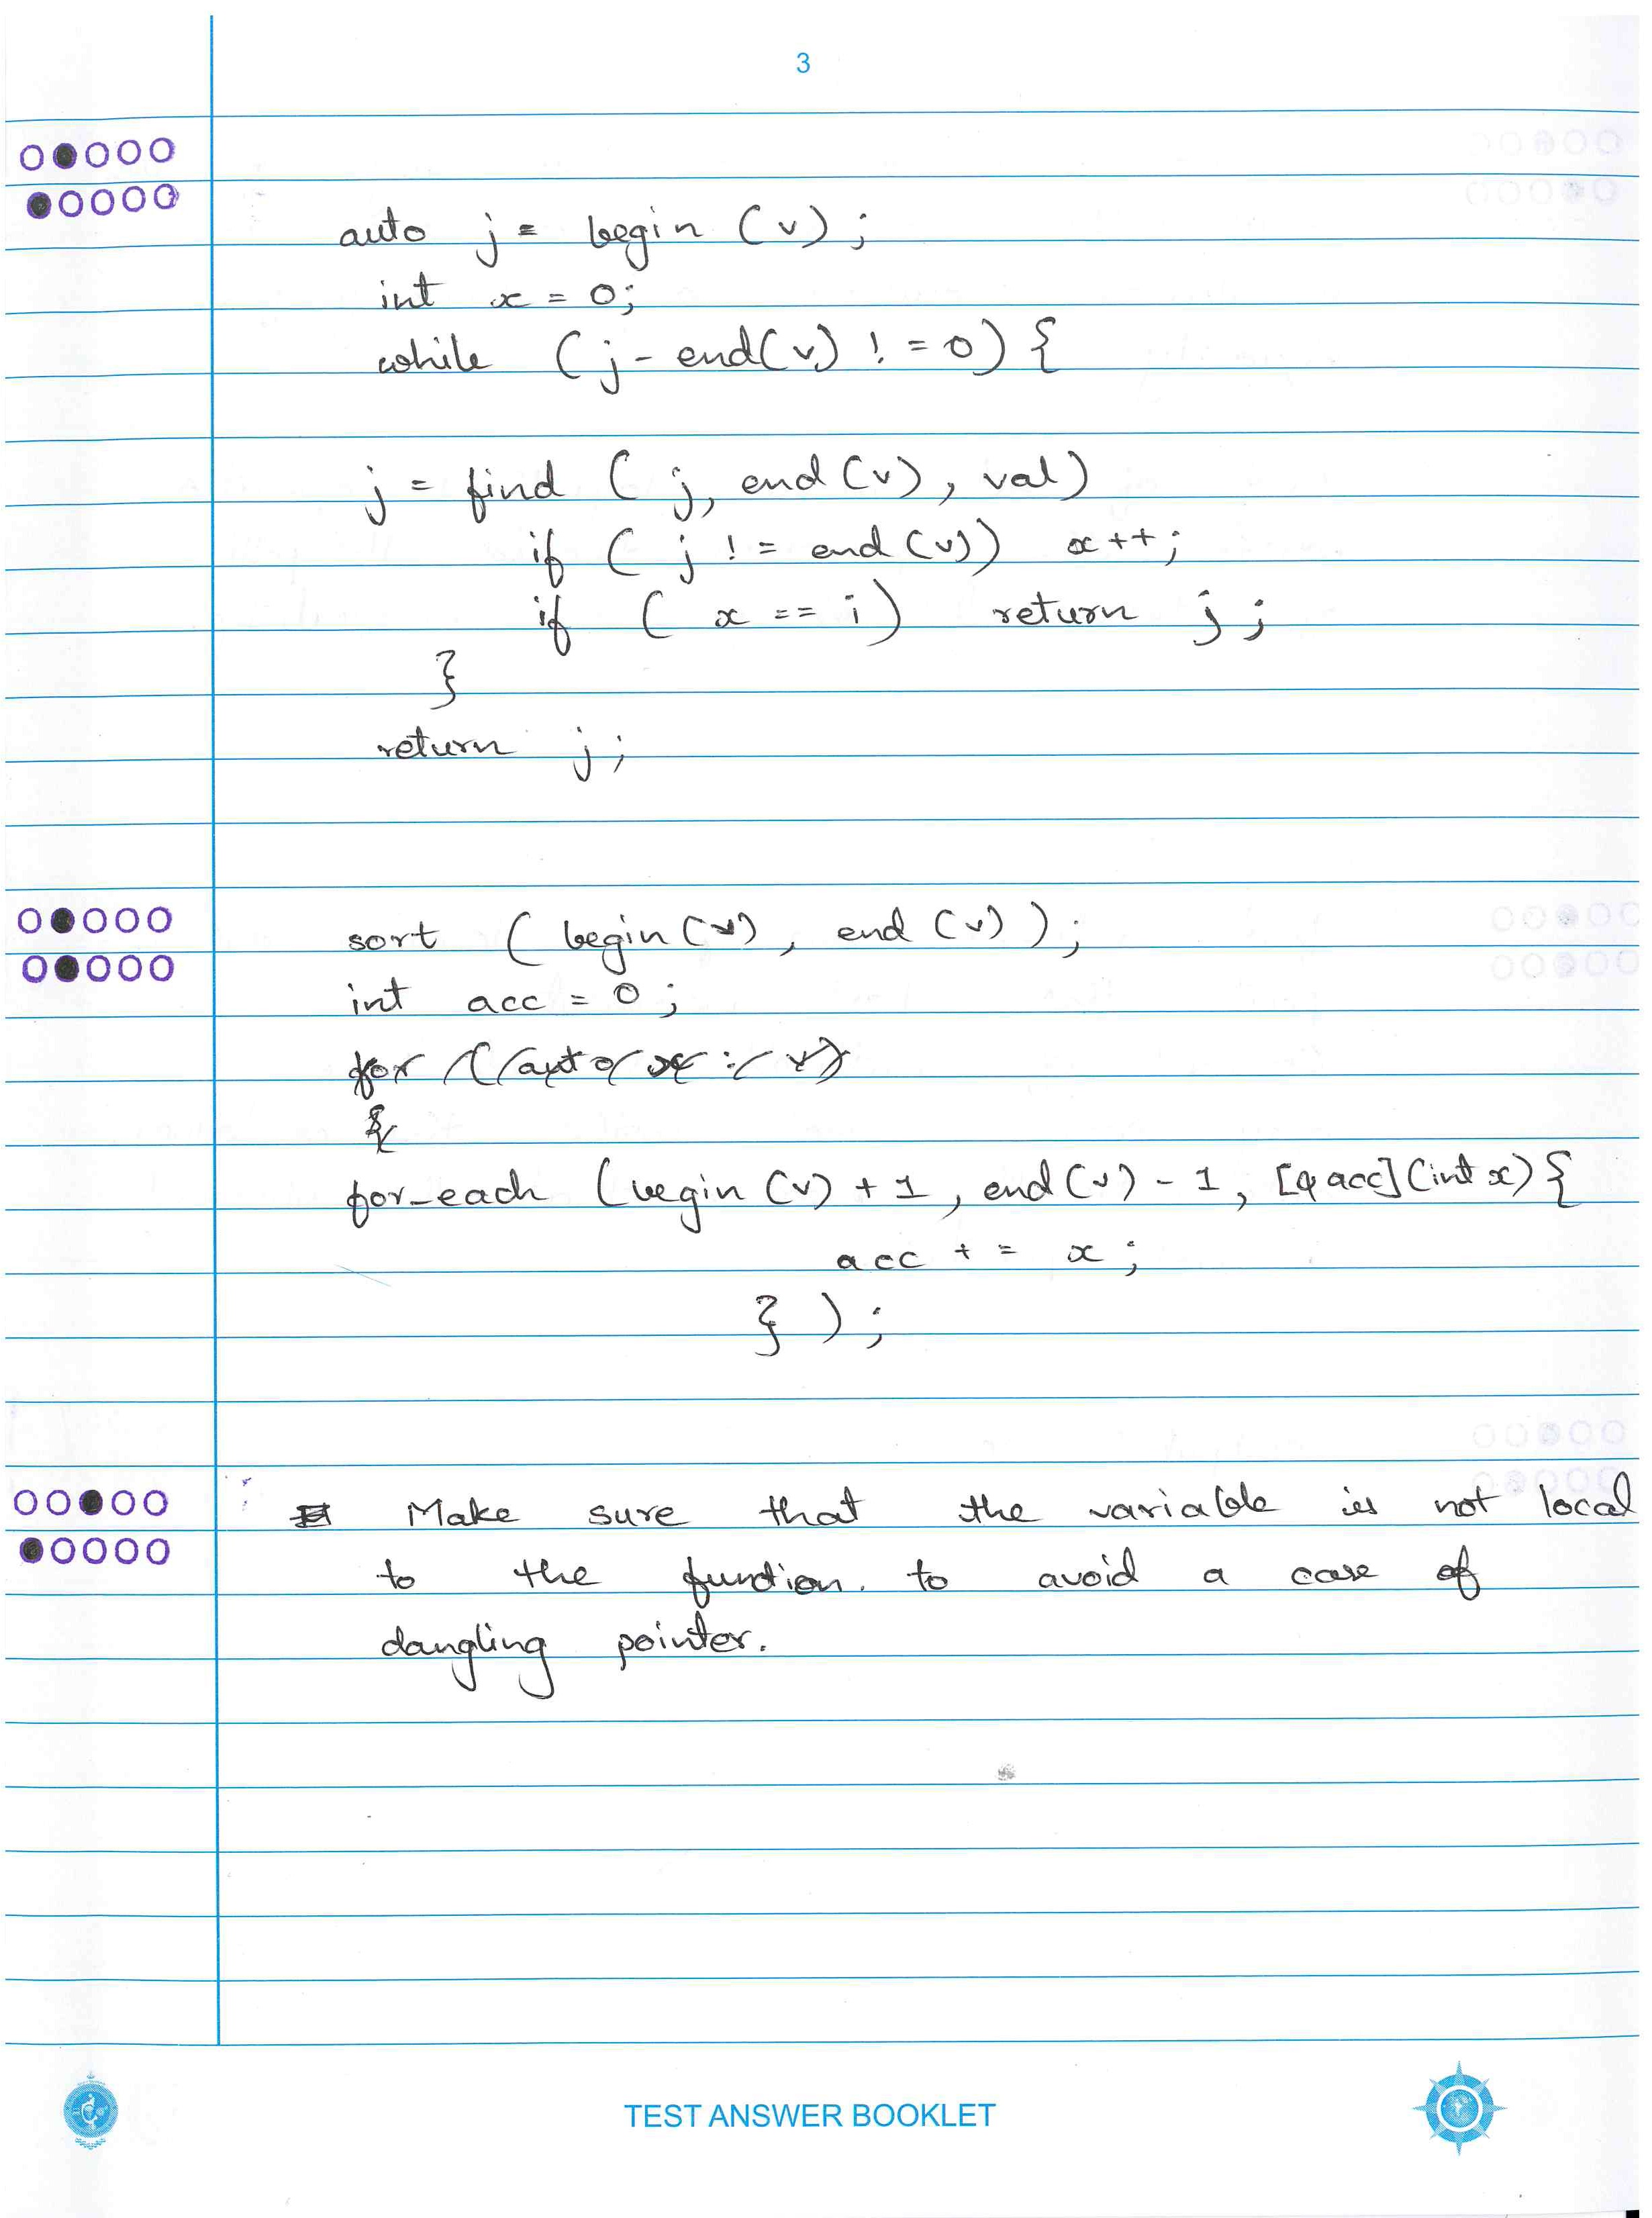 3
auto j = begin (v);
int x = 0;
while (j - end(v) != 0) {
j = find (j, end(v), val)
if (j != end(v)) x++;
if (x == i) return j;
}
return j;
sort (begin(v), end(v));
int acc = 0;
for (auto x : v)
{
for-each (begin(v) + 1, end(v) - 1, [& acc](int x) {
acc += x;
});
Make sure that the variable is not local
to the function. to avoid a case of
dangling pointer.
TEST ANSWER BOOKLET